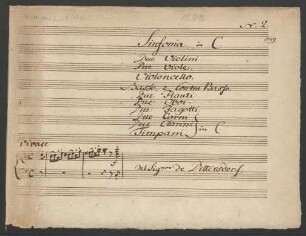 N. 2.
Sinfonia in C
Due Violini
Due Viole
Violoncello.
Basso, e Contra Basso.
Due Flauti
Due Oboi
Due Fagotti
Due Corni
Due Clarini
in C
Timpani
Vivace
Del Sigre de Dittersdorf.